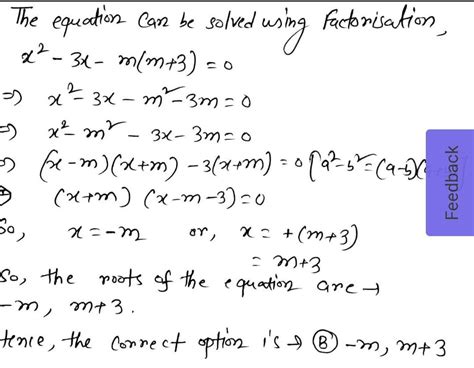 The equation can be solved using Factorisation,
x² - 3x - m(m+3) = 0
⇒ x² - 3x - m² - 3m = 0
⇒ x² - m² - 3x - 3m = 0
⇒ (x-m)(x+m) - 3(x+m) = 0 [a² - b² = (a-b)(
(x+m) (x-m-3) = 0
So, x = -m or, x = +(m+3)
= m+3
So, the roots of the equation are →
-m, m+3.
Hence, the correct option is → Ⓑ -m, m+3
Feedback